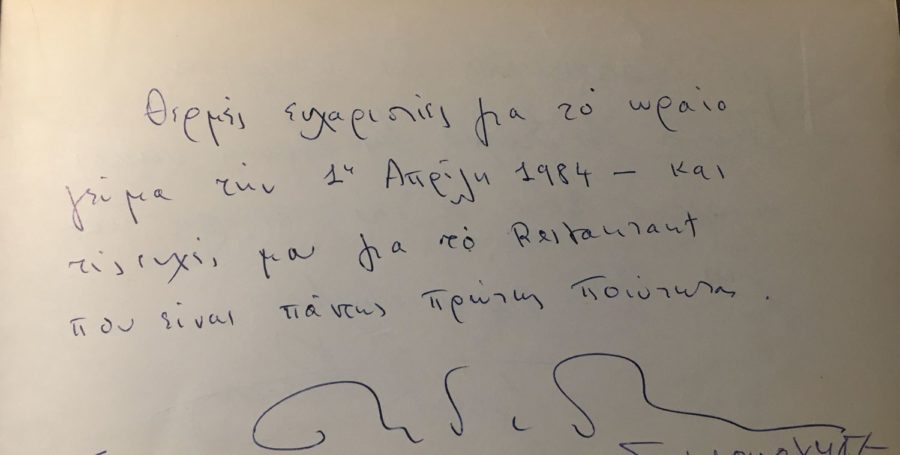 Θερμές ευχαριστίες για τό ωραίο
γεύμα τήν 1η Απρίλη 1984 – και
τίς ευχές μου για τό Restaurant
που είναι πάντα πρώτης ποιότητας.